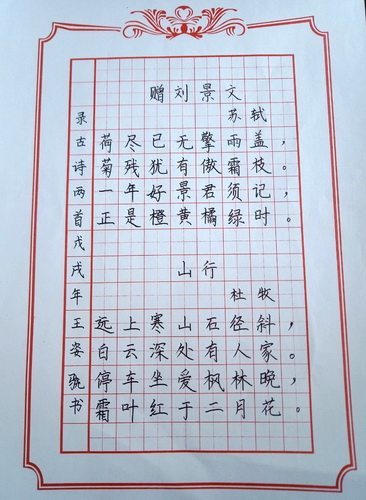 赠刘景文
苏轼
荷尽已无擎雨盖，
菊残犹有傲霜枝。
一年好景君须记，
正是橙黄橘绿时。
山行
杜牧
远上寒山石径斜，
白云深处有人家。
停车坐爱枫林晚，
霜叶红于二月花。
录古诗两首戊戌年王姿骁书